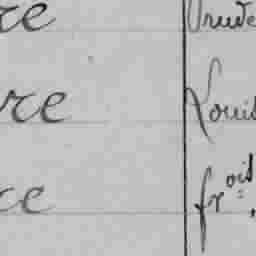 re Prude
re Louis
ce frois